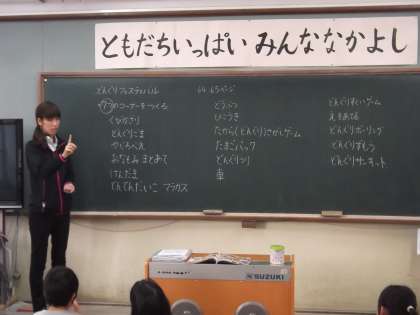 ともだちいっぱい みんななかよし
どんぐりフェスティバル
のコーナーをつくる
くびかざり
どんぐりごま
やじろべえ
おなもみ まとあて
けんだま
でんでんだいこ マラカス
64.65ページ
どうぶつ
ひこうき
たからくどんぐりさがしゲーム
たまごパック
どんぐりつり
車
えあわせ
どんぐりボーリング
どんぐりずもう
SUZUKI